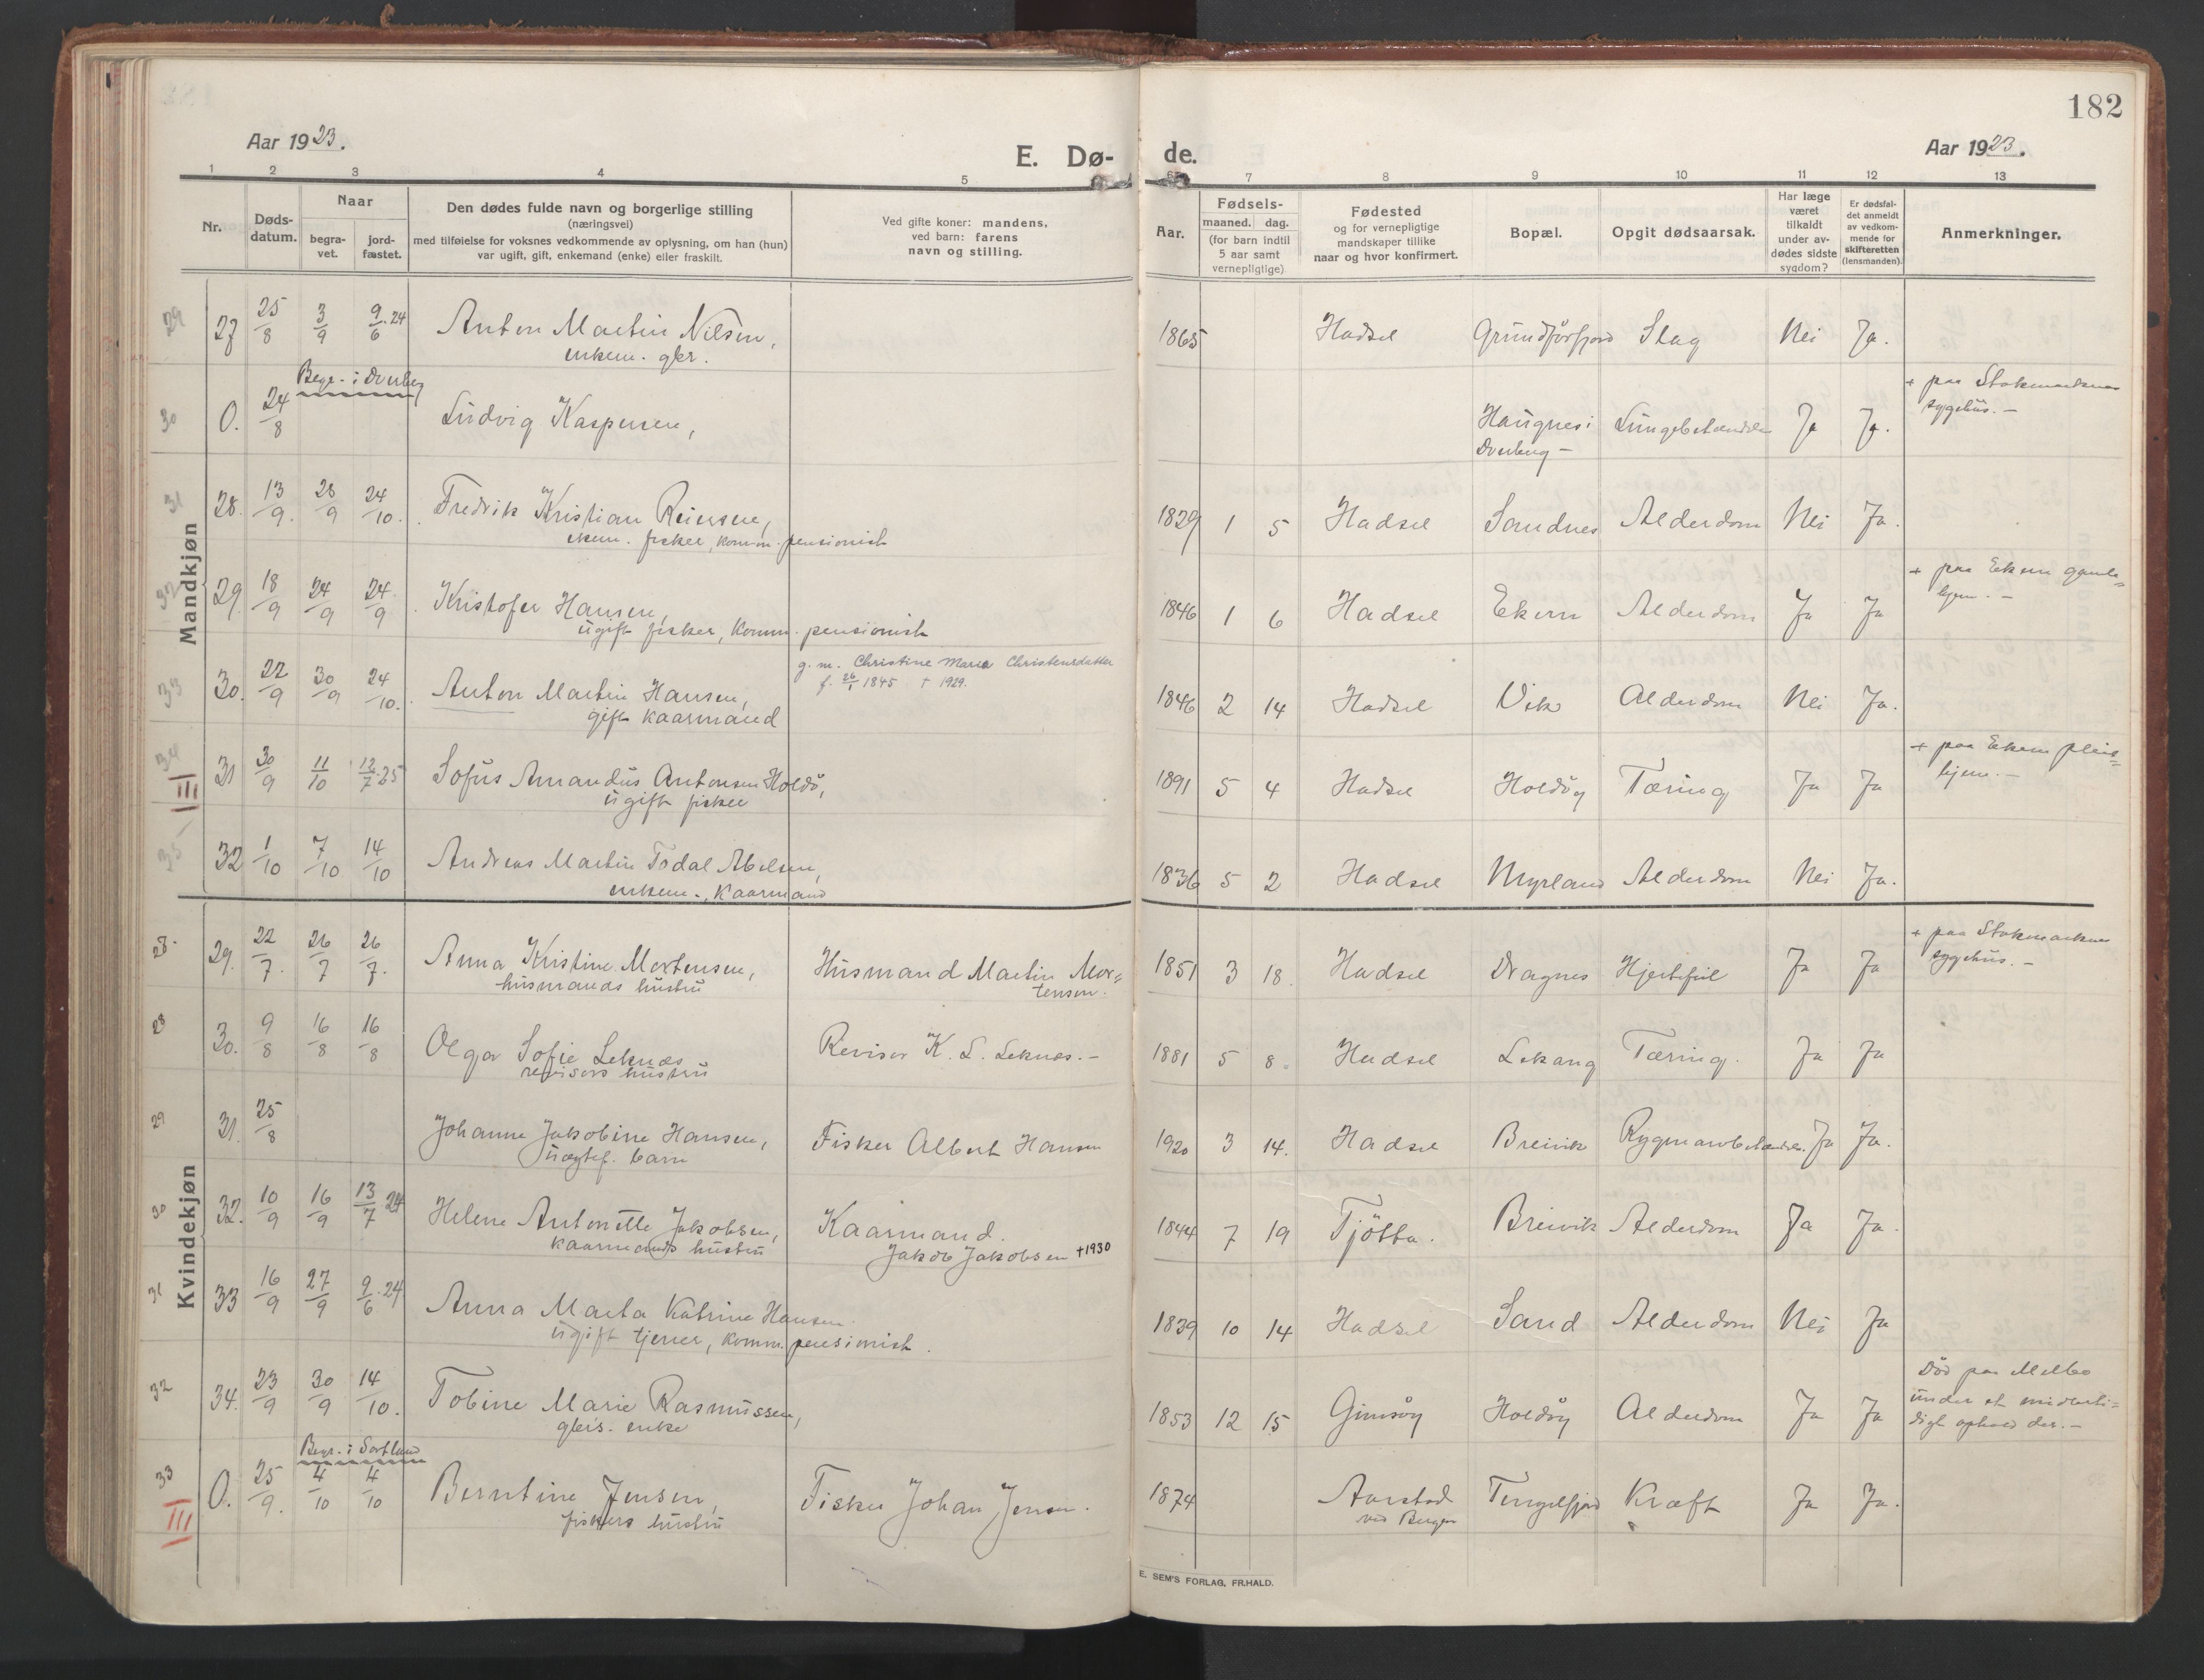 182
Aar 1923.
E. Dø-
de.
Aar 1923.
1 2 3 4 5 7 8 9 10 11 12 13
Nr.
Døds-
datum.
Naar
begra-
vet.
jord-
fæstet.
Den dødes fulde navn og borgerlige stilling
(næringsvei)
med tilføielse for voksnes vedkommende av oplysning, om han (hun)
var ugift, gift, enkemand (enke) eller fraskilt.
Ved gifte koner: mandens,
ved barn: farens
navn og stilling.
Aar.
Fødsels-
maaned. dag.
(for barn indtil
5 aar samt
vernepligtige)
Fødested
og for vernepligtige
mandskaper tillike
naar og hvor konfirmert.
Bopæl.
Opgit dødsaarsak.
Har læge
været
tilkaldt
under av-
dødes sidste
sygdom?
Er dødsfal-
det anmeldt
av vedkom-
mende for
skifteretten
(lensmanden).
Anmerkninger.
Mandkjøn
29 27 25/8 3/9 9/6.24 Anton Martin Nilsen, 1865 Hadsel Grundførfjord Slag Nei Ja.
enkem. gbr.
Begr. i Dverberg
30 0. 24/8 Ludvig Kaspersen, Haugnes i Lungebetændelse Ja Ja. + paa Stokmarknes
Dverberg - sygehus. -
31 28. 13/9. 28/9 24/10. Fredrik Kristian Reiersen, 1829 1 5 Hadsel Sandnes Alderdom Nei Ja.
ekem. fisker, komm. pensionist
32 29. 18/9 24/9 24/9 Kristofer Hansen, 1846 1 6 Hadsel Ekern Alderdom Ja Ja + paa Ekern gamle=
ugift fisker, komm. pensionist hjem. -
g. m. Christine Maria Christensdatter
f. 26/1 1845 † 1929.
33 30. 22/9 30/9 24/10. Anton Martin Hansen, 1846 2 14 Hadsel Vik Alderdom Nei Ja.
gift kaarmand
34 III 31 30/9 11/10 12/7.25 Sofus Amandus Antonsen Holdø, 1891 5 4 Hadsel Holdøy Tæring Ja Ja + paa Ekern pleie=
ugift fisker hjem. -
35 32 1/10 7/10 14/10 Andreas Martin Todal Abelsen, 1836 5 2 Hadsel Myrland Alderdom Nei Ja.
enkem., Kaarmand
Kvindekjøn
29. 22/7. 26/7 26/7. Anna Kristine Mortensen, Husmand Martin Mor= 1851 3 18. Hadsel Dragnes Hjertefeil Ja Ja + paa Stokmarknes
husmands hustru tensen. sygehus. -
28 30. 9/8 16/8 16/8 Olga Sofie Leknes Revisor K. L. Leknes. - 1881 5 8. Hadsel Lekang Tæring. Ja Ja
revisors hustru
29 31. 25/8 Johanne Jakobine Hansen, Fisker Albert Hansen 1920 3 14. Hadsel Breivik Rygmarvbetændelse. Ja Ja.
uægtef. barn
30 32. 10/9 16/9 13/7 24 Helene Antonette Jakobsen, Kaarmand. 1844 7 19 Tjøtta. Breivik Alderdom Ja Ja.
kaarmands hustru Jakob Jakobsen †1930
31 33 16/9 27/9 9/6.24 Anna Marta Katrine Hansen. 1839 10 14 Hadsel Sand Alderdom Nei Ja
ugift tjener, komm. pensionist.
32 34. 23/9 30/9 14/10. Tobine Marie Rasmussen, 1853 12 15 Gimsøy Holdøy Alderdom Ja Ja Død paa Melbo
gbeis. enke under et midlerti=
digt ophold der. -
Begr. i Sortland
33 III 0. 25/9. 4/10 4/10 Berntine Jensen, Fisker Johan Jensen. 1874 Aarstad Tengelfjord Kræft Ja Ja.
fiskers hustru ved Bergen
E. SEM'S FORLAG, FR.HALD.